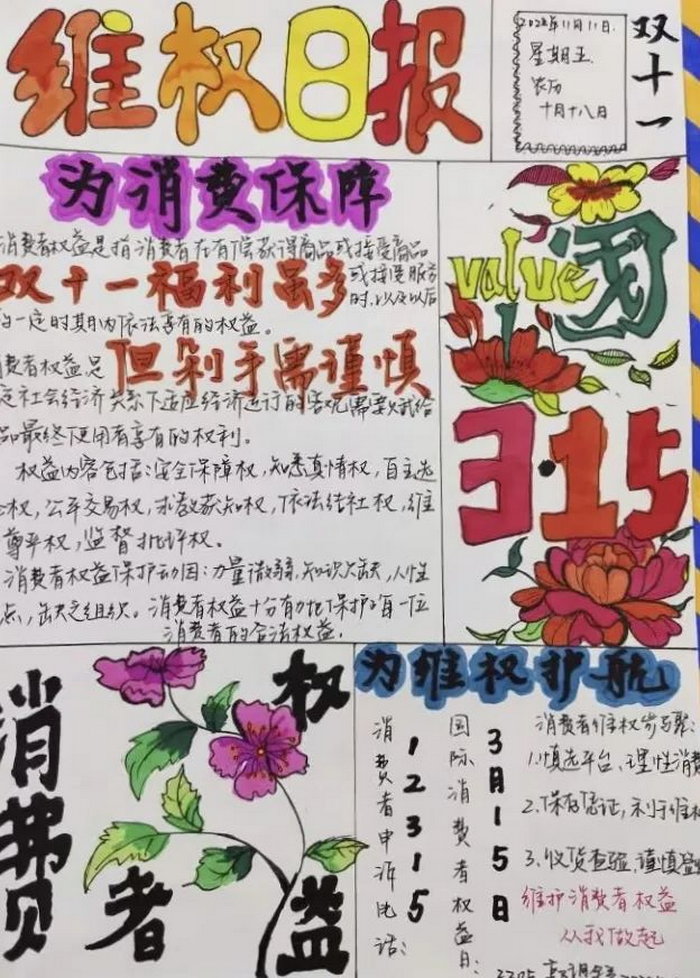 维权日报
2022年11月11日.
星期五.
农历
十月十八日
双十一
为消费保障
消费者权益是指消费者在有偿获得商品或接受商品
双十一福利虽多
或接受服务
时.以及以后
的一定时期内依法享有的权益。
费者权益是
但剁手需谨慎
定社会经济关系下适应经济运行的客观需要赋给
品最终使用者享有的权利。
权益内容包括:安全保障权,知悉真情权,自主选
权,公平交易权,求教获知权,依法结社权,维
尊严权,监督批评权。
消费者权益保护动因:力量微弱,知识欠缺,人性
点,缺乏组织。消费者权益十分有力地保护了每一位
消费者的合法权益.
value
3·15
消费者权益
为维权护航
消费者申诉电话:
12315
国际消费者权益日:
3月15日
消费者维权步骤:
1.慎选平台、理性消费
2.保存凭证,利于维权
3.收货查验,谨慎
维护消费者权益
从我做起